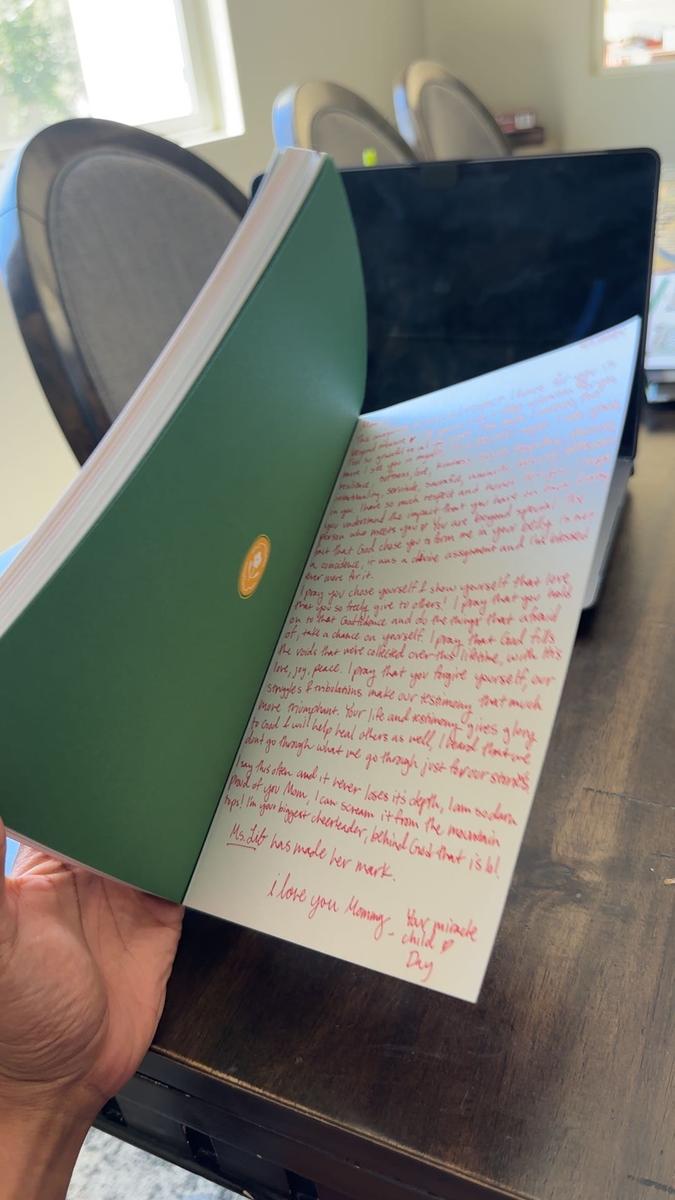 beyond measure
Feel so grateful
more I see you in myself.
resilience, softness, love, kindness,
in you. I have so much respect and honor
you understand the impact that you have on
person who meets you. You are beyond special! The
fact that God chose you to form me in your belly, is not
a coincidence, it was a divine assignment and I'm blessed
ever more for it.
I pray you chose yourself & show yourself that love
that you so freely give to others! I pray that you hold
on to that Godfidence and do the things that afraid
of, take a chance on yourself. I pray that God fills
the voids that we've collected over this lifetime, with His
love, joy, peace. I pray that you forgive yourself, our
struggles & tribulations make our testimony that much
more triumphant. Your life and testimony gives glory
to God & will help heal others as well, I heard that we
don't go through what we go through just for our stories,
I say this often and it never loses its depth, I am so darn
proud of you Mom, I can scream it from the mountain
tops! I'm your biggest cheerleader, behind God that is lol.
Ms. Lit has made her mark.
i love you Mommy -
Your miracle
child
Day